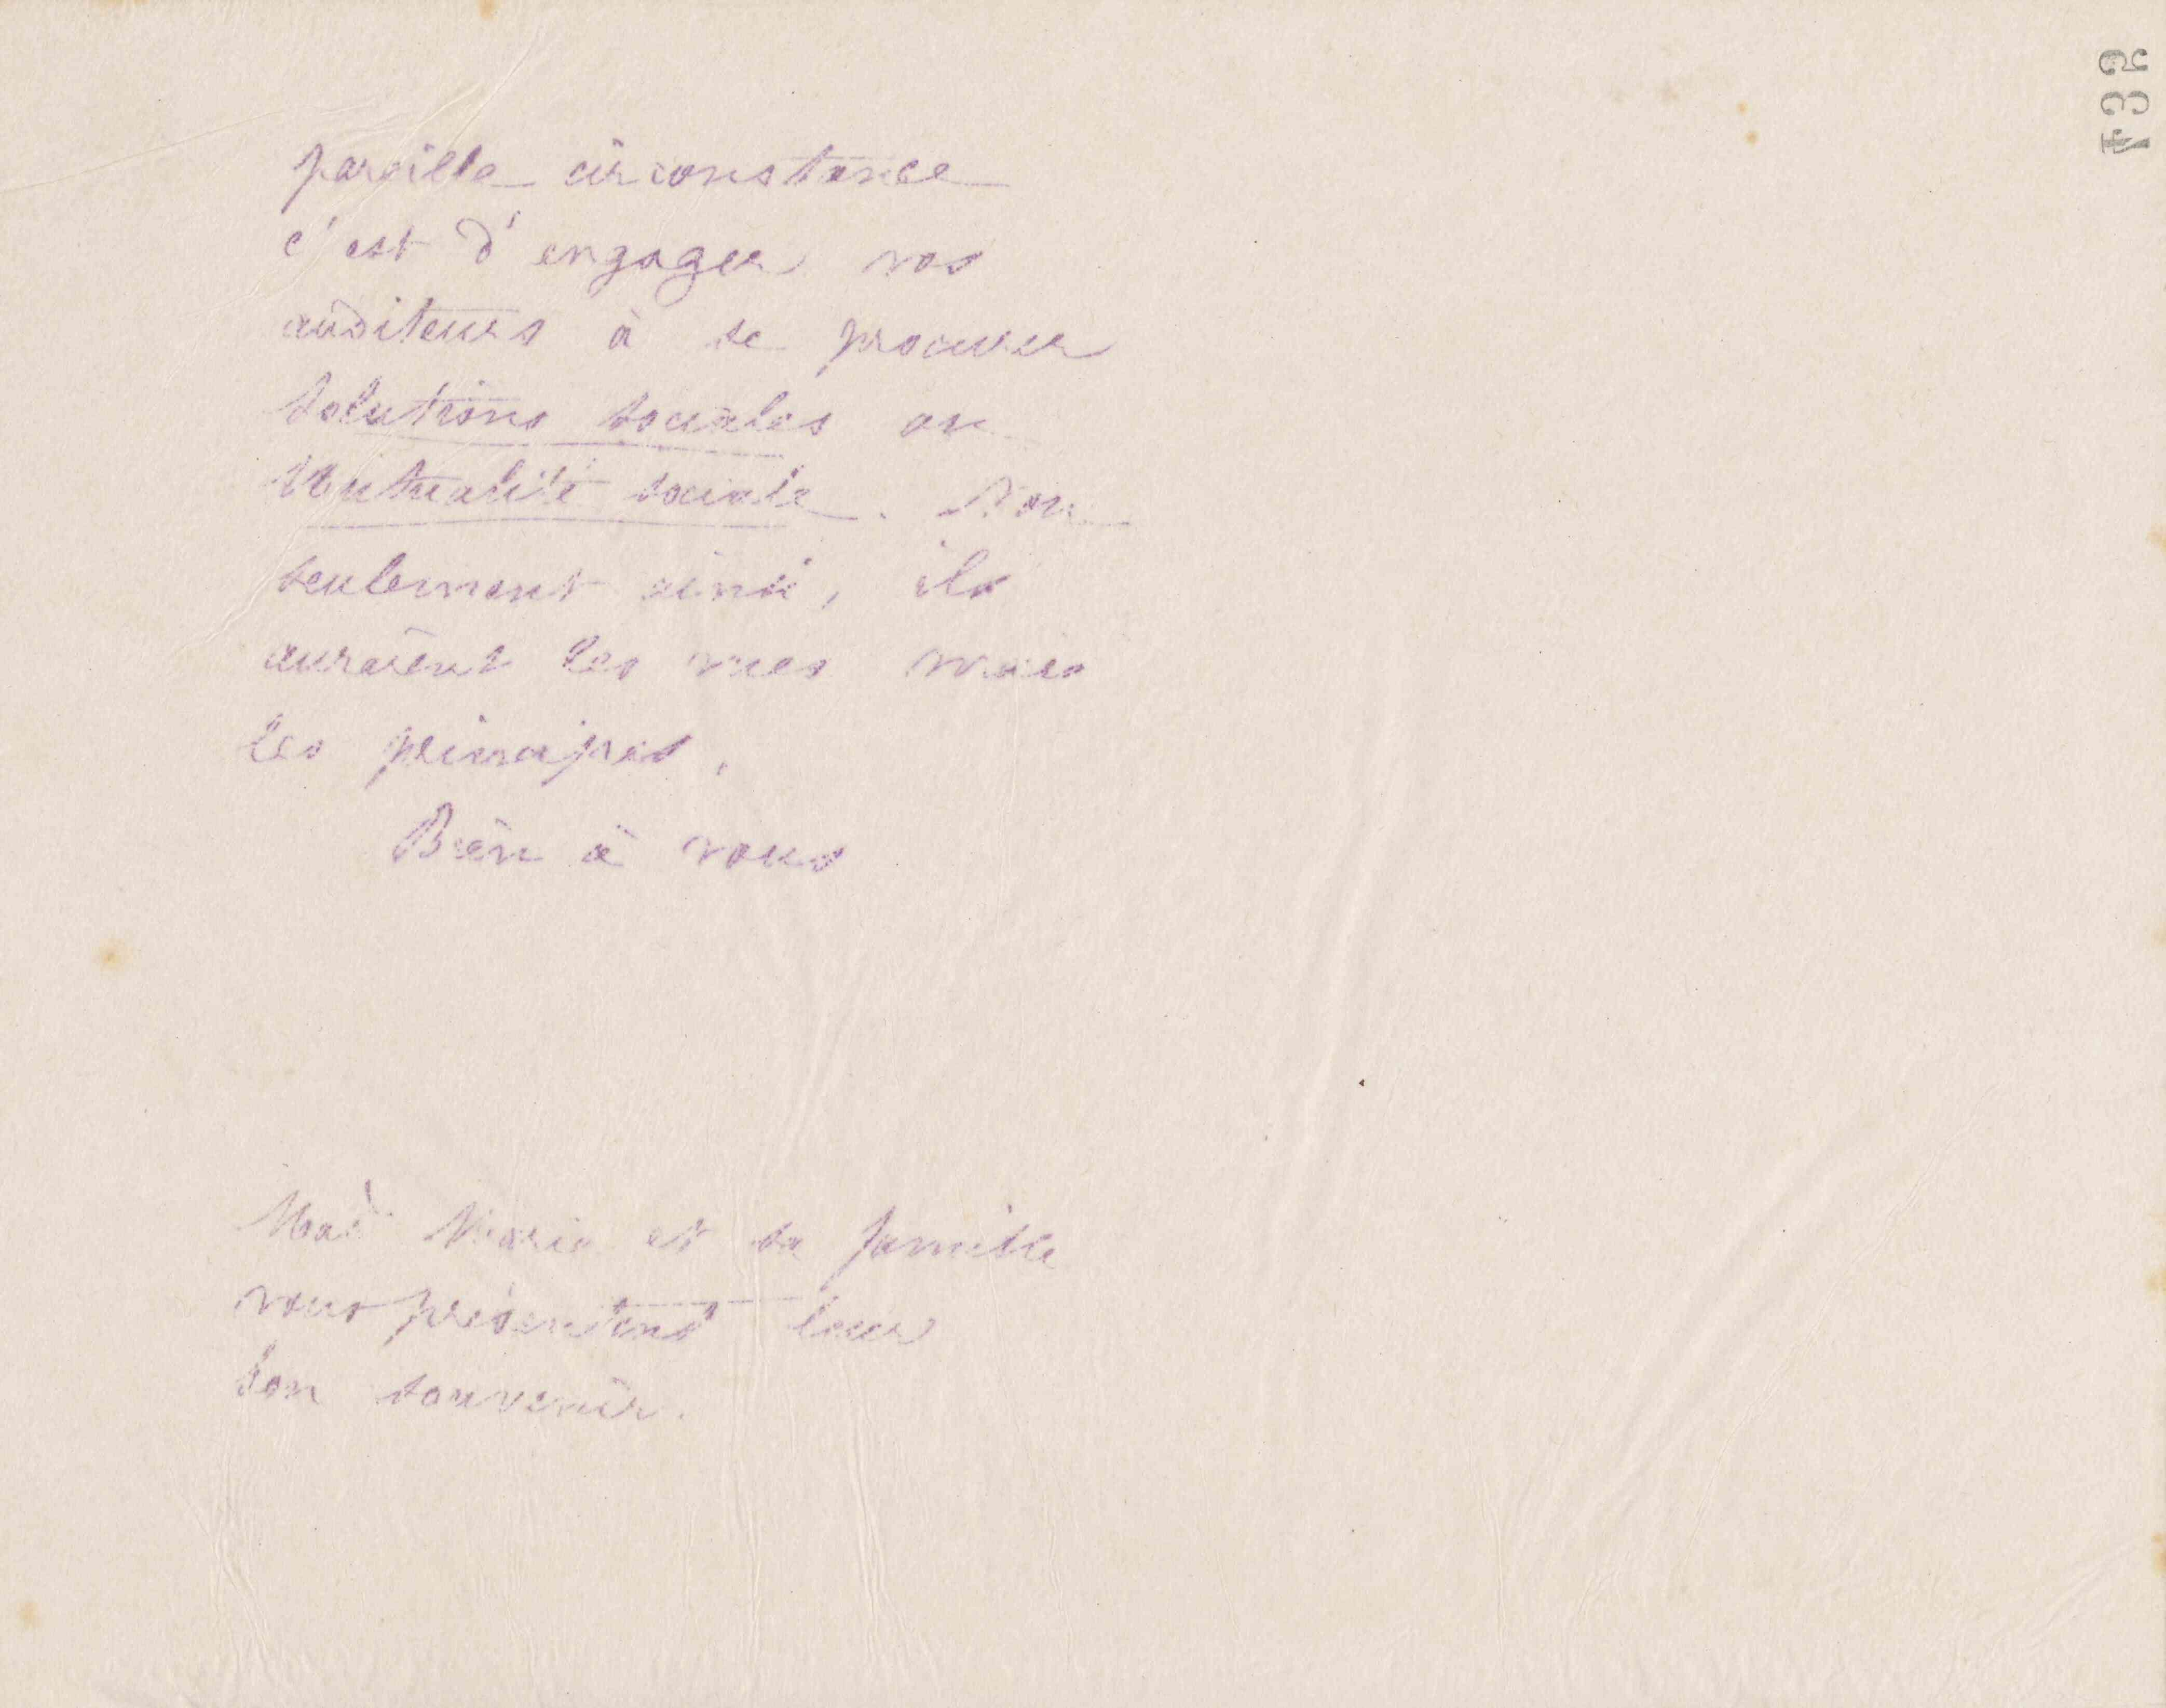 pareille circonstance
c'est d'engager vos
auditeurs à se procurer
Solutions sociales ou
Mutualité sociale. Non
seulement ainsi, ils
auraient les vues mais
les principes.
Bien à vous
Mad. Marie et sa famille
vous présentent leur
bon souvenir.